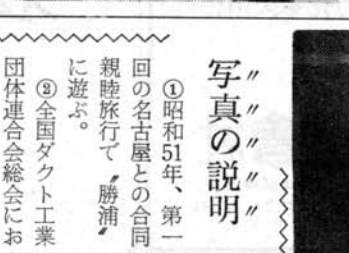 写真の説明
①昭和51年、第一
回の名古屋との合同
親睦旅行で〝勝浦〟
に遊ぶ。
②全国ダクト工業
団体連合会総会にお